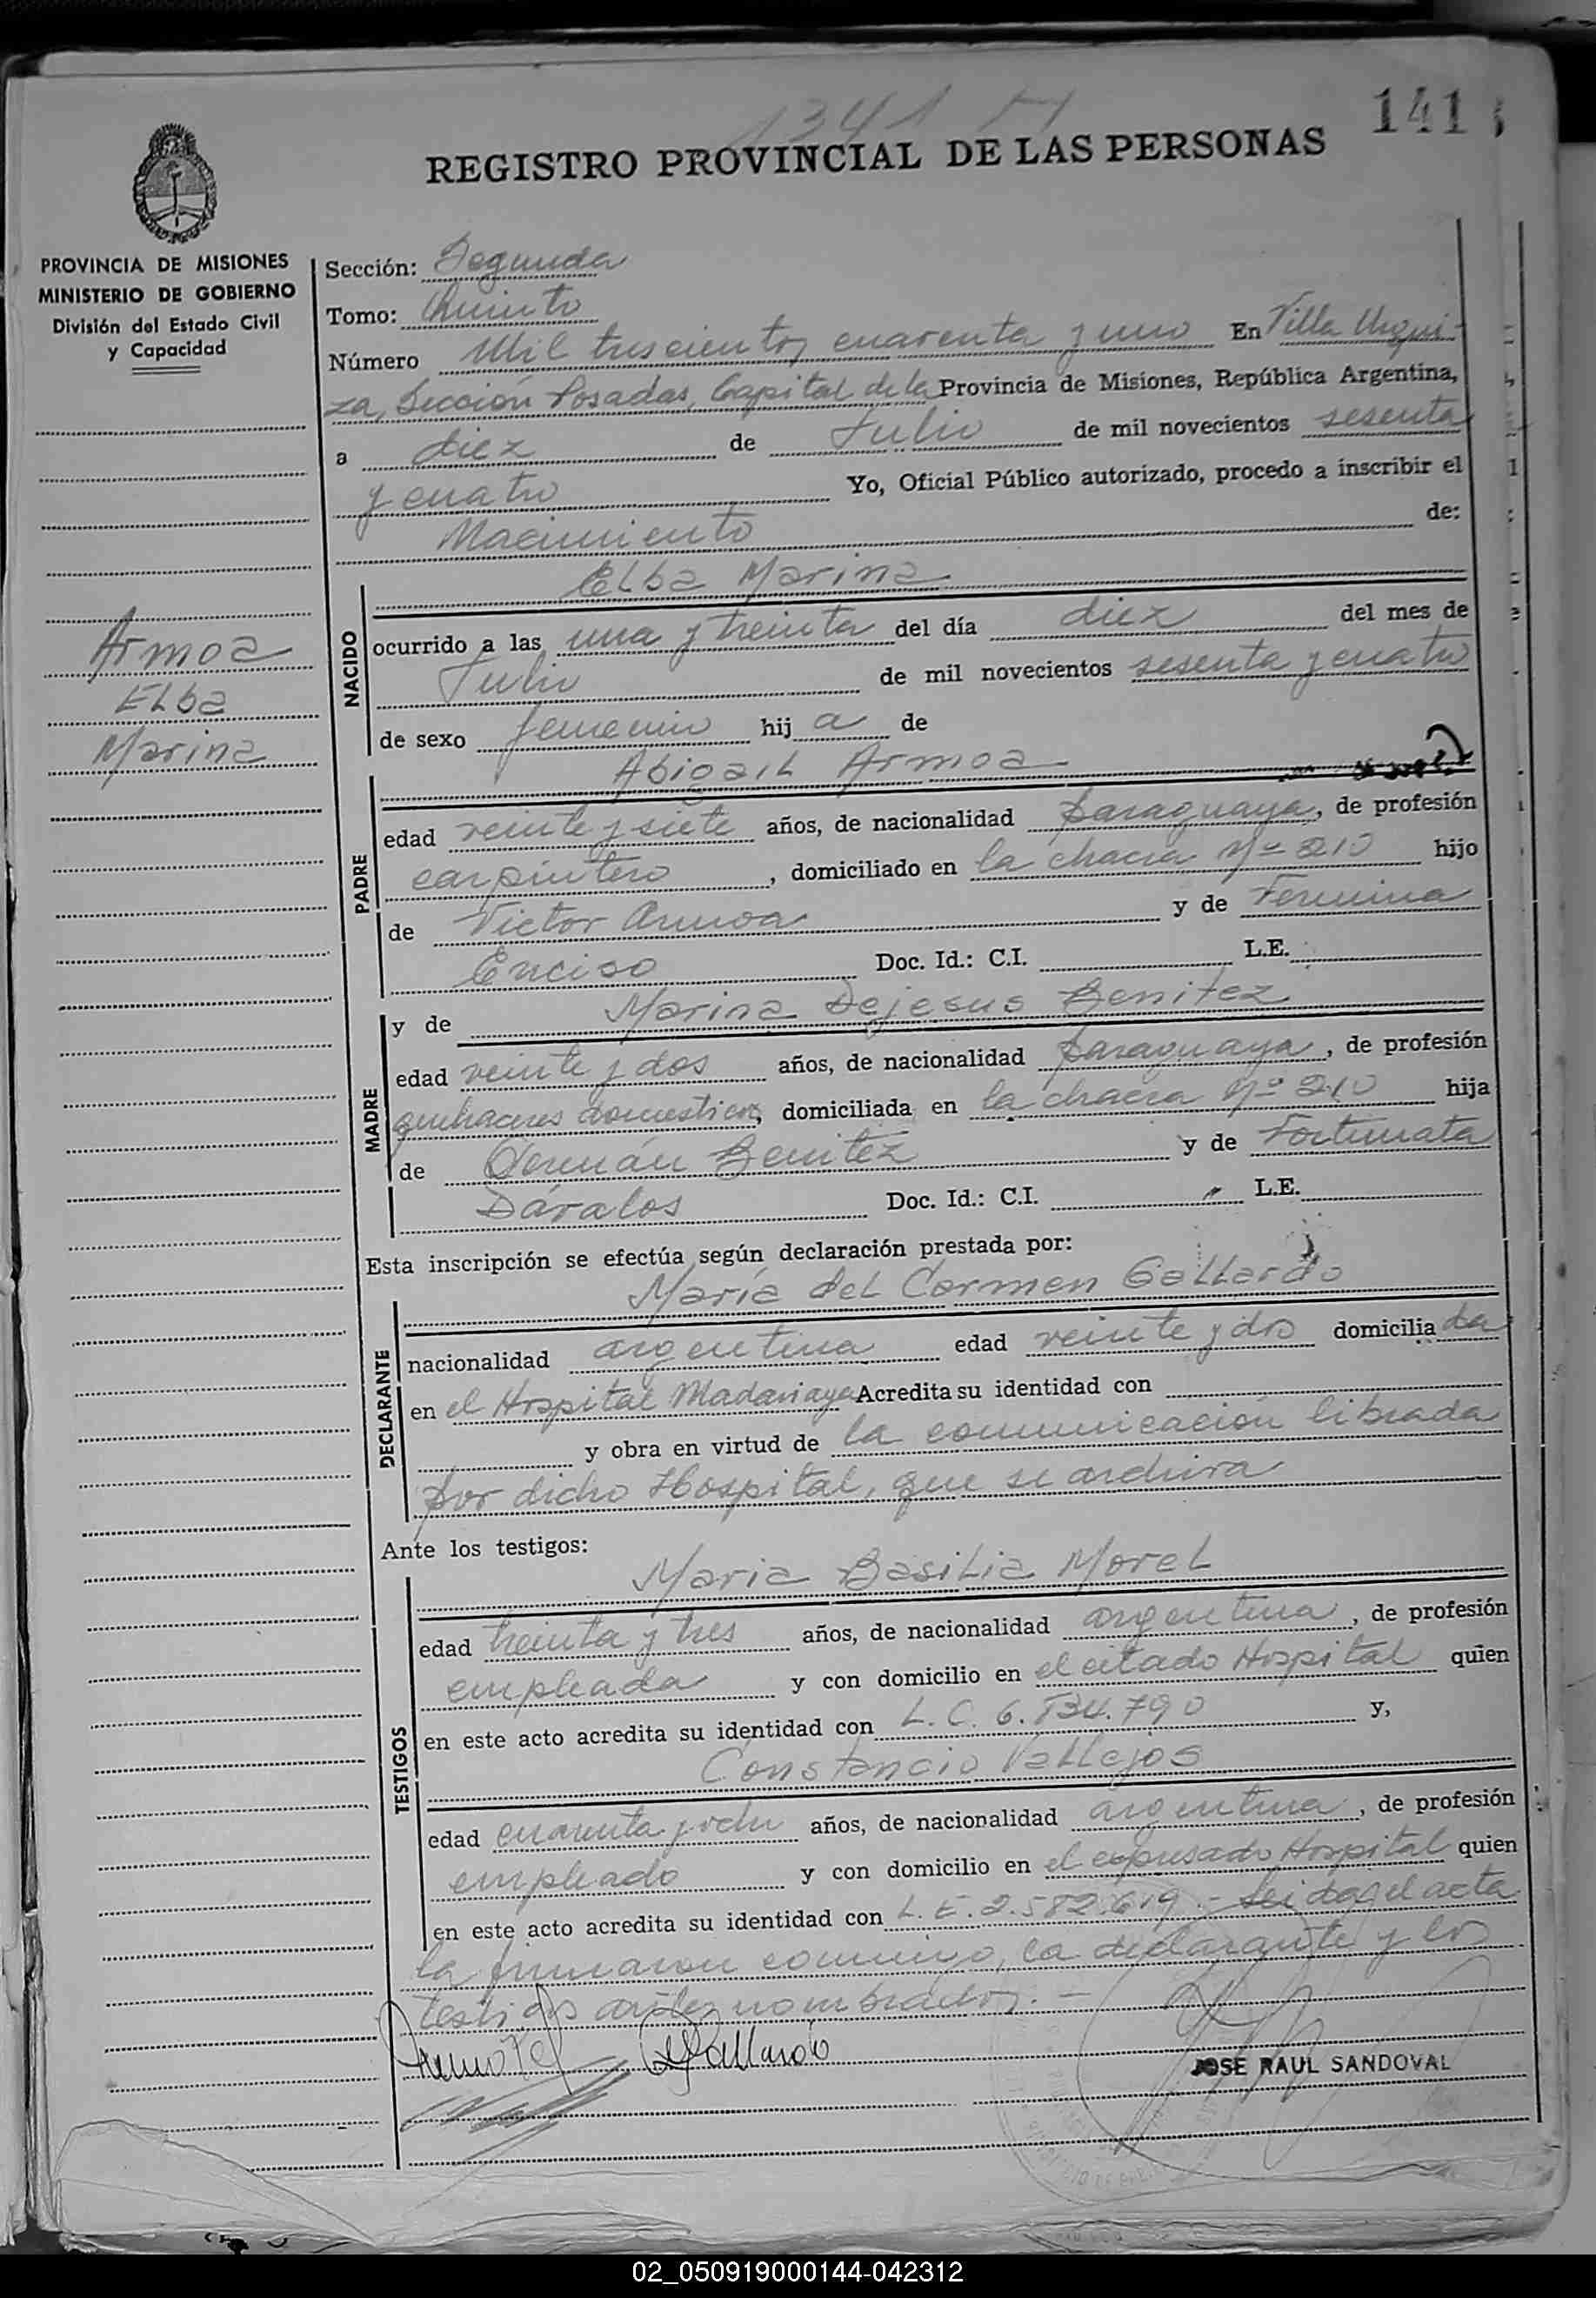 1341 H
141
REGISTRO PROVINCIAL DE LAS PERSONAS
PROVINCIA DE MISIONES
MINISTERIO DE GOBIERNO
División del Estado Civil
y Capacidad
Armoa
Elba
Marina
Sección: Segunda
Tomo: Quinto
Número Mil trescientos cuarenta y uno En Villa Urqui-
za, Sección Posadas, Capital de la Provincia de Misiones, República Argentina,
a diez de Julio de mil novecientos sesenta
y cuatro Yo, Oficial Público autorizado, procedo a inscribir el
Nacimiento de:
NACIDO
Elba Marina
ocurrido a las una y treinta del día diez del mes de
Julio de mil novecientos sesenta y cuatro
de sexo femenino hij a de
PADRE
Abigail Armoa
edad veinte y siete años, de nacionalidad paraguaya, de profesión
carpintero, domiciliado en la chacra Nº 210 hijo
de Victor Armoa y de Fermina
Enciso Doc. Id.: C.I. L.E.
MADRE
y de Marina Dejesus Benitez
edad veinte y dos años, de nacionalidad paraguaya, de profesión
quehaceres domesticos, domiciliada en la chacra Nº 210 hija
de Germán Benitez y de Fortunata
Dávalos Doc. Id.: C.I. L.E.
Esta inscripción se efectúa según declaración prestada por:
DECLARANTE
María del Carmen Gallardo
nacionalidad argentina edad veinte y dos domicilia da
en el Hospital Madariaga Acredita su identidad con
y obra en virtud de la comunicación librada
por dicho Hospital, que se archiva
Ante los testigos:
TESTIGOS
Maria Basilia Morel
edad treinta y tres años, de nacionalidad argentina, de profesión
empleada y con domicilio en el citado Hospital quien
en este acto acredita su identidad con L.C. 6.834.790 y,
Constancio Vallejos
edad cuarenta y ocho años, de nacionalidad argentina, de profesión
empleado y con domicilio en el expresado Hospital quien
en este acto acredita su identidad con L.E. 2.582.619.- Leida el acta
la firmaron conmigo, la declarante y los
testigos antes nombrados.-
Gallardo
JOSE RAUL SANDOVAL
02_050919000144-042312